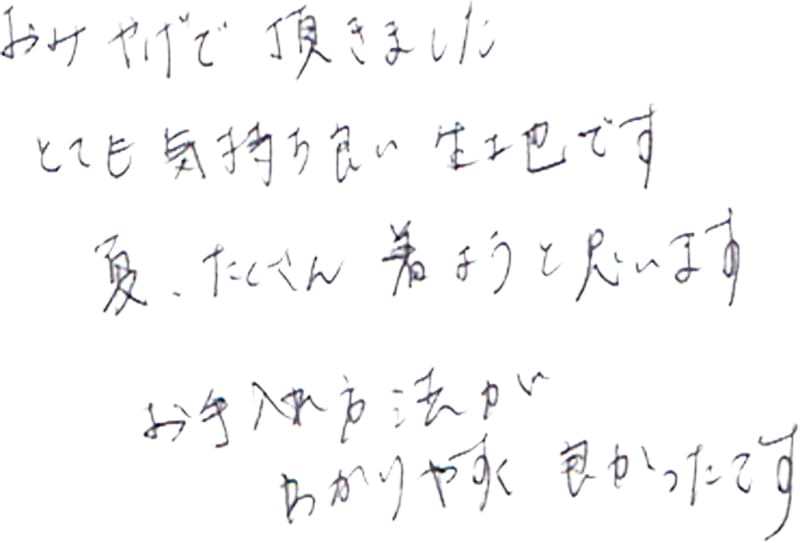 おみやげで 頂きました
とても気持ち良い生地です
夏、たくさん着ようと思います
お手入れ方法が
わかりやすく良かったです